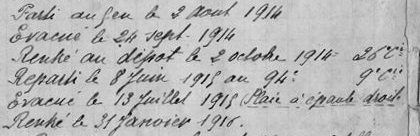 Parti au feu le 2 Aout 1914
Evacué le 24 sept. 1914
Rentré au dépot le 2 octobre 1914 26e Cie
Reparti le 8 Juin 1915 au 94e 9e Cie
Evacué le 13 Juillet 1915 (Plaie à épaule droite
Rentré le 31 Janvier 1916.